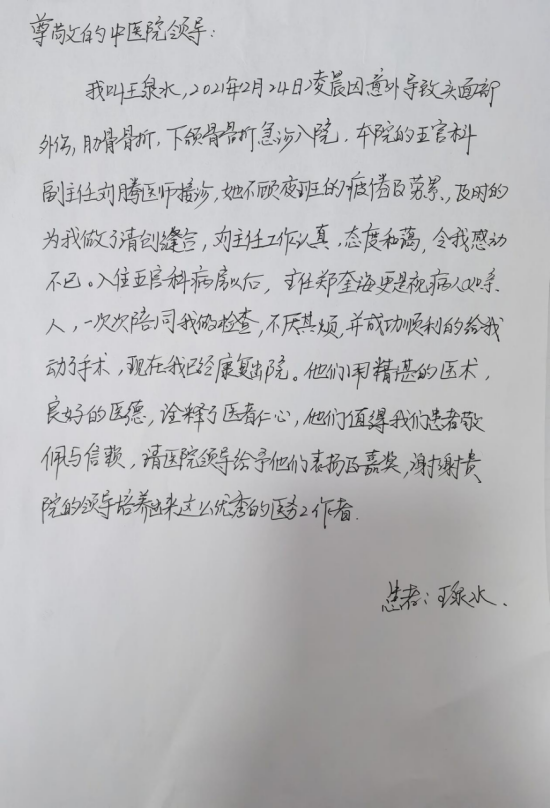 尊敬的中医院领导：
我叫王泉水，2021年2月24日凌晨因意外导致头面部
外伤，肋骨骨折，下颌骨骨折急诊入院，本院的五官科
副主任刘腾医师接诊，她不顾夜班的疲倦及劳累，及时的
为我做了清创缝合，刘主任工作认真，态度和蔼，令我感动
不已。入住五官科病房以后，主任郑奎海更是视病人如亲
人，一次次陪同我做检查，不厌其烦，并成功顺利的给我
动了手术，现在我已经康复出院。他们用精湛的医术，
良好的医德，诠释了医者仁心，他们值得我们患者敬
佩与信赖，请医院领导给予他们表扬及嘉奖，谢谢贵
院的领导培养出来这么优秀的医务工作者.
患者：王泉水.